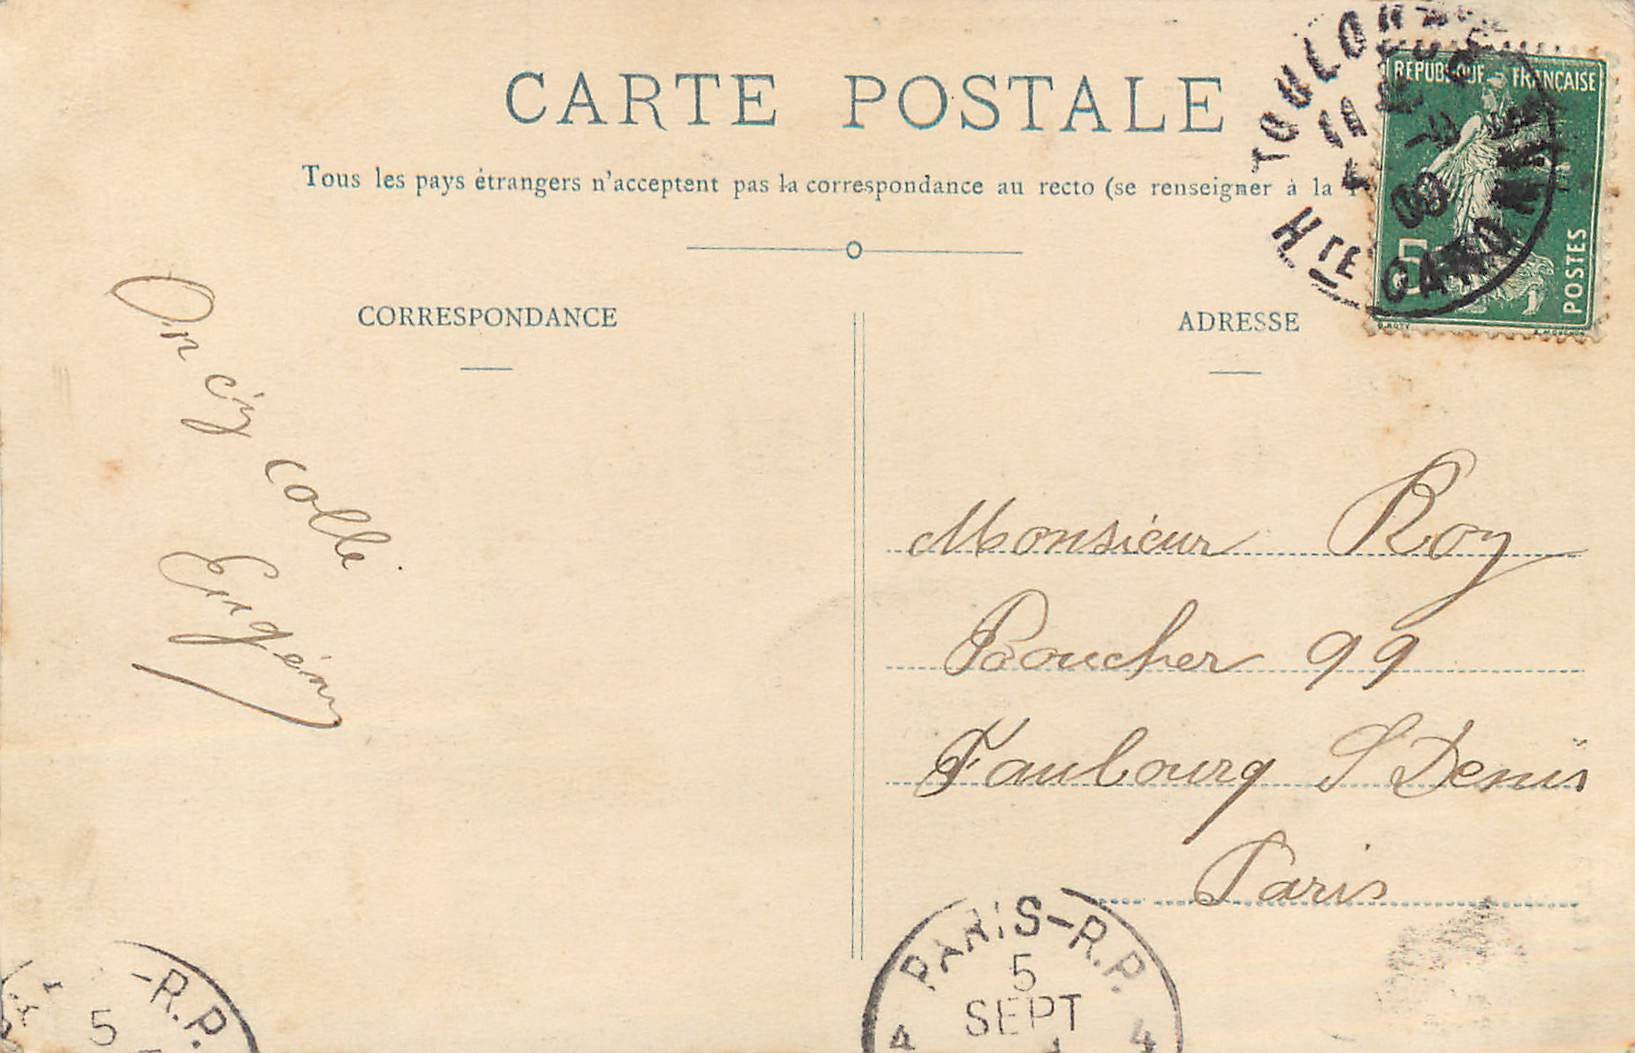 CARTE POSTALE
Tous les pays étrangers n'acceptent pas la correspondance au recto (se renseigner à la
CORRESPONDANCE
ADRESSE
On s'y colle
Eugène
Monsieur Roy
Boucher 99
Faubourg St Denis
Paris
REPUBLIQUE FRANÇAISE
5
POSTES
TOULOUSE
09
Hte GARONNE
PARIS-R.P.
5
SEPT
4 4
-R.P.
5